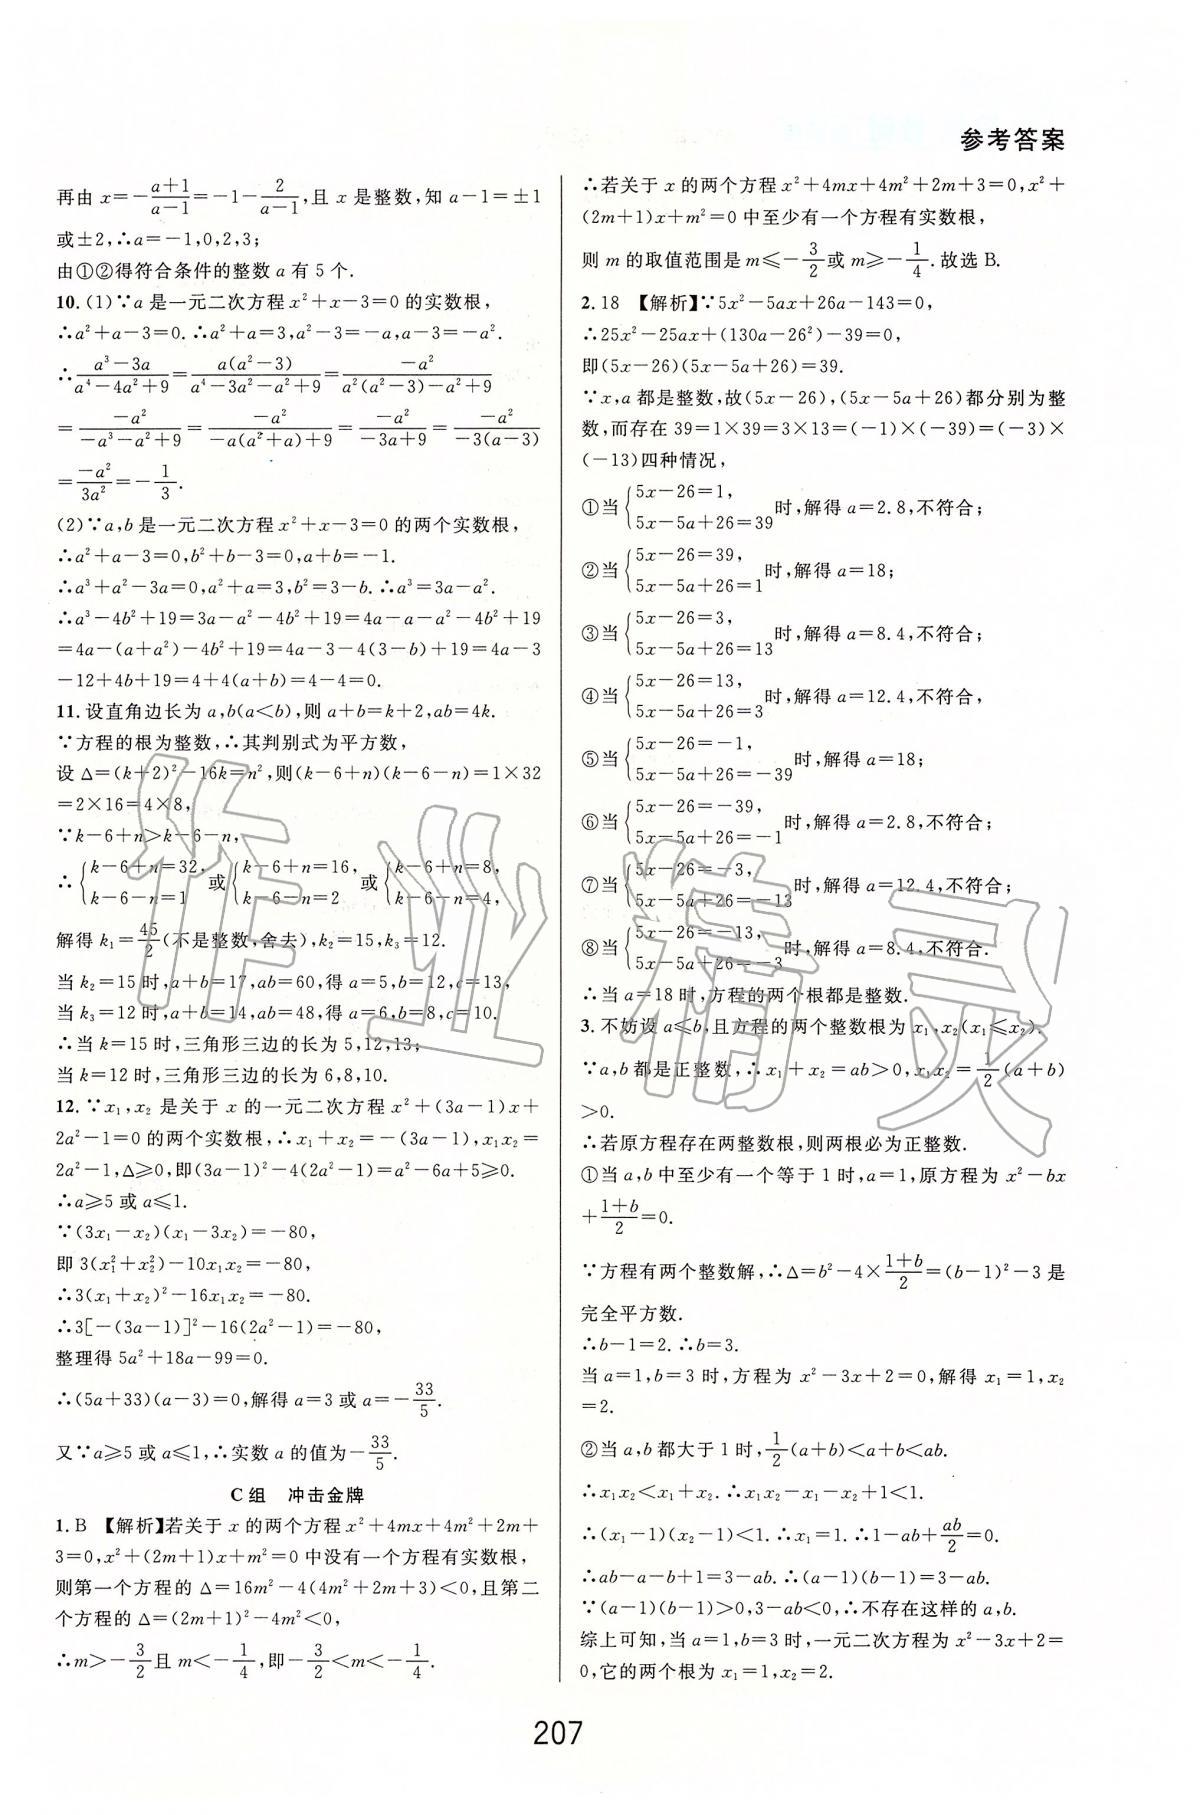 参考答案
再由 x=-\frac{a+1}{a-1}=-1-\frac{2}{a-1},且 x 是整数,知 a-1=±1
或±2,∴a=-1,0,2,3;
由①②得符合条件的整数 a 有 5 个.
10.(1)∵a 是一元二次方程 x²+x-3=0 的实数根,
∴a²+a-3=0.∴a²+a=3,a²-3=-a,a-3=-a².
∴\frac{a³-3a}{a⁴-4a²+9}=\frac{a(a²-3)}{a⁴-3a²-a²+9}=\frac{-a²}{a²(a²-3)-a²+9}
=\frac{-a²}{-a³-a²+9}=\frac{-a²}{-a(a²+a)+9}=\frac{-a²}{-3a+9}=\frac{-a²}{-3(a-3)}
=\frac{-a²}{3a²}=-\frac{1}{3}.
(2)∵a,b 是一元二次方程 x²+x-3=0 的两个实数根,
∴a²+a-3=0,b²+b-3=0,a+b=-1.
∴a³+a²-3a=0,b²=3-b.∴a³=3a-a².
∴a³-4b²+19=3a-a²-4b²+19=4a-a-a²-4b²+19
=4a-(a+a²)-4b²+19=4a-3-4(3-b)+19=4a-3
-12+4b+19=4+4(a+b)=4-4=0.
11.设直角边长为 a,b(a<b),则 a+b=k+2,ab=4k.
∵方程的根为整数,∴其判别式为平方数,
设 Δ=(k+2)²-16k=n²,则(k-6+n)(k-6-n)=1×32
=2×16=4×8,
∵k-6+n>k-6-n,
∴{k-6+n=32, k-6-n=1 或{k-6+n=16, k-6-n=2 或{k-6+n=8, k-6-n=4,
解得 k₁=\frac{45}{2}(不是整数,舍去),k₂=15,k₃=12.
当 k₂=15 时,a+b=17,ab=60,得 a=5,b=12,c=13,
当 k₃=12 时,a+b=14,ab=48,得 a=6,b=8,c=10.
∴当 k=15 时,三角形三边的长为 5,12,13;
当 k=12 时,三角形三边的长为 6,8,10.
12.∵x₁,x₂ 是关于 x 的一元二次方程 x²+(3a-1)x+
2a²-1=0 的两个实数根,∴x₁+x₂=-(3a-1),x₁x₂=
2a²-1,Δ≥0,即(3a-1)²-4(2a²-1)=a²-6a+5≥0.
∴a≥5 或 a≤1.
∵(3x₁-x₂)(x₁-3x₂)=-80,
即 3(x₁²+x₂²)-10x₁x₂=-80,
∴3(x₁+x₂)²-16x₁x₂=-80.
∴3[-(3a-1)]²-16(2a²-1)=-80,
整理得 5a²+18a-99=0.
∴(5a+33)(a-3)=0,解得 a=3 或 a=-\frac{33}{5}.
又∵a≥5 或 a≤1,∴实数 a 的值为-\frac{33}{5}.
C组 冲击金牌
1.B 【解析】若关于 x 的两个方程 x²+4mx+4m²+2m+
3=0,x²+(2m+1)x+m²=0 中没有一个方程有实数根,
则第一个方程的 Δ=16m²-4(4m²+2m+3)<0,且第二
个方程的 Δ=(2m+1)²-4m²<0,
∴m>-\frac{3}{2}且 m<-\frac{1}{4},即-\frac{3}{2}<m<-\frac{1}{4}.
∴若关于 x 的两个方程 x²+4mx+4m²+2m+3=0,x²+
(2m+1)x+m²=0 中至少有一个方程有实数根,
则 m 的取值范围是 m≤-\frac{3}{2}或 m≥-\frac{1}{4}.故选 B.
2.18 【解析】∵5x²-5ax+26a-143=0,
∴25x²-25ax+(130a-26²)-39=0,
即(5x-26)(5x-5a+26)=39.
∵x,a 都是整数,故(5x-26),(5x-5a+26)都分别为整
数,而存在 39=1×39=3×13=(-1)×(-39)=(-3)×
(-13)四种情况,
①当{5x-26=1, 5x-5a+26=39 时,解得 a=2.8,不符合;
②当{5x-26=39, 5x-5a+26=1 时,解得 a=18;
③当{5x-26=3, 5x-5a+26=13 时,解得 a=8.4,不符合;
④当{5x-26=13, 5x-5a+26=3 时,解得 a=12.4,不符合,
⑤当{5x-26=-1, 5x-5a+26=-39 时,解得 a=18;
⑥当{5x-26=-39, 5x-5a+26=-1 时,解得 a=2.8,不符合;
⑦当{5x-26=-3, 5x-5a+26=-13 时,解得 a=12.4,不符合;
⑧当{5x-26=-13, 5x-5a+26=-3 时,解得 a=8.4,不符合.
∴当 a=18 时,方程的两个根都是整数.
3.不妨设 a≤b,且方程的两个整数根为 x₁,x₂(x₁≤x₂).
∵a,b 都是正整数,∴x₁+x₂=ab>0,x₁x₂=\frac{1}{2}(a+b)
>0.
∴若原方程存在两整数根,则两根必为正整数.
①当 a,b 中至少有一个等于 1 时,a=1,原方程为 x²-bx
+\frac{1+b}{2}=0.
∵方程有两个整数解,∴Δ=b²-4×\frac{1+b}{2}=(b-1)²-3 是
完全平方数.
∴b-1=2.∴b=3.
当 a=1,b=3 时,方程为 x²-3x+2=0,解得 x₁=1,x₂
=2.
②当 a,b 都大于 1 时,\frac{1}{2}(a+b)<a+b<ab.
∴x₁x₂<x₁+x₂.∴x₁x₂-x₁-x₂+1<1.
∴(x₁-1)(x₂-1)<1.∴x₁=1.∴1-ab+\frac{ab}{2}=0.
∴ab-a-b+1=3-ab.∴(a-1)(b-1)=3-ab.
∵(a-1)(b-1)>0,3-ab<0,∴不存在这样的 a,b.
综上可知,当 a=1,b=3 时,一元二次方程为 x²-3x+2=
0,它的两个根为 x₁=1,x₂=2.
207
作业精灵